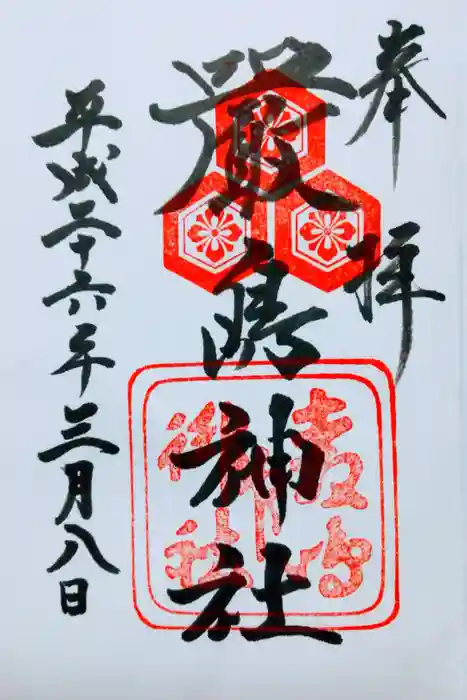 奉拝
嚴島神社
平成二十六年三月八日